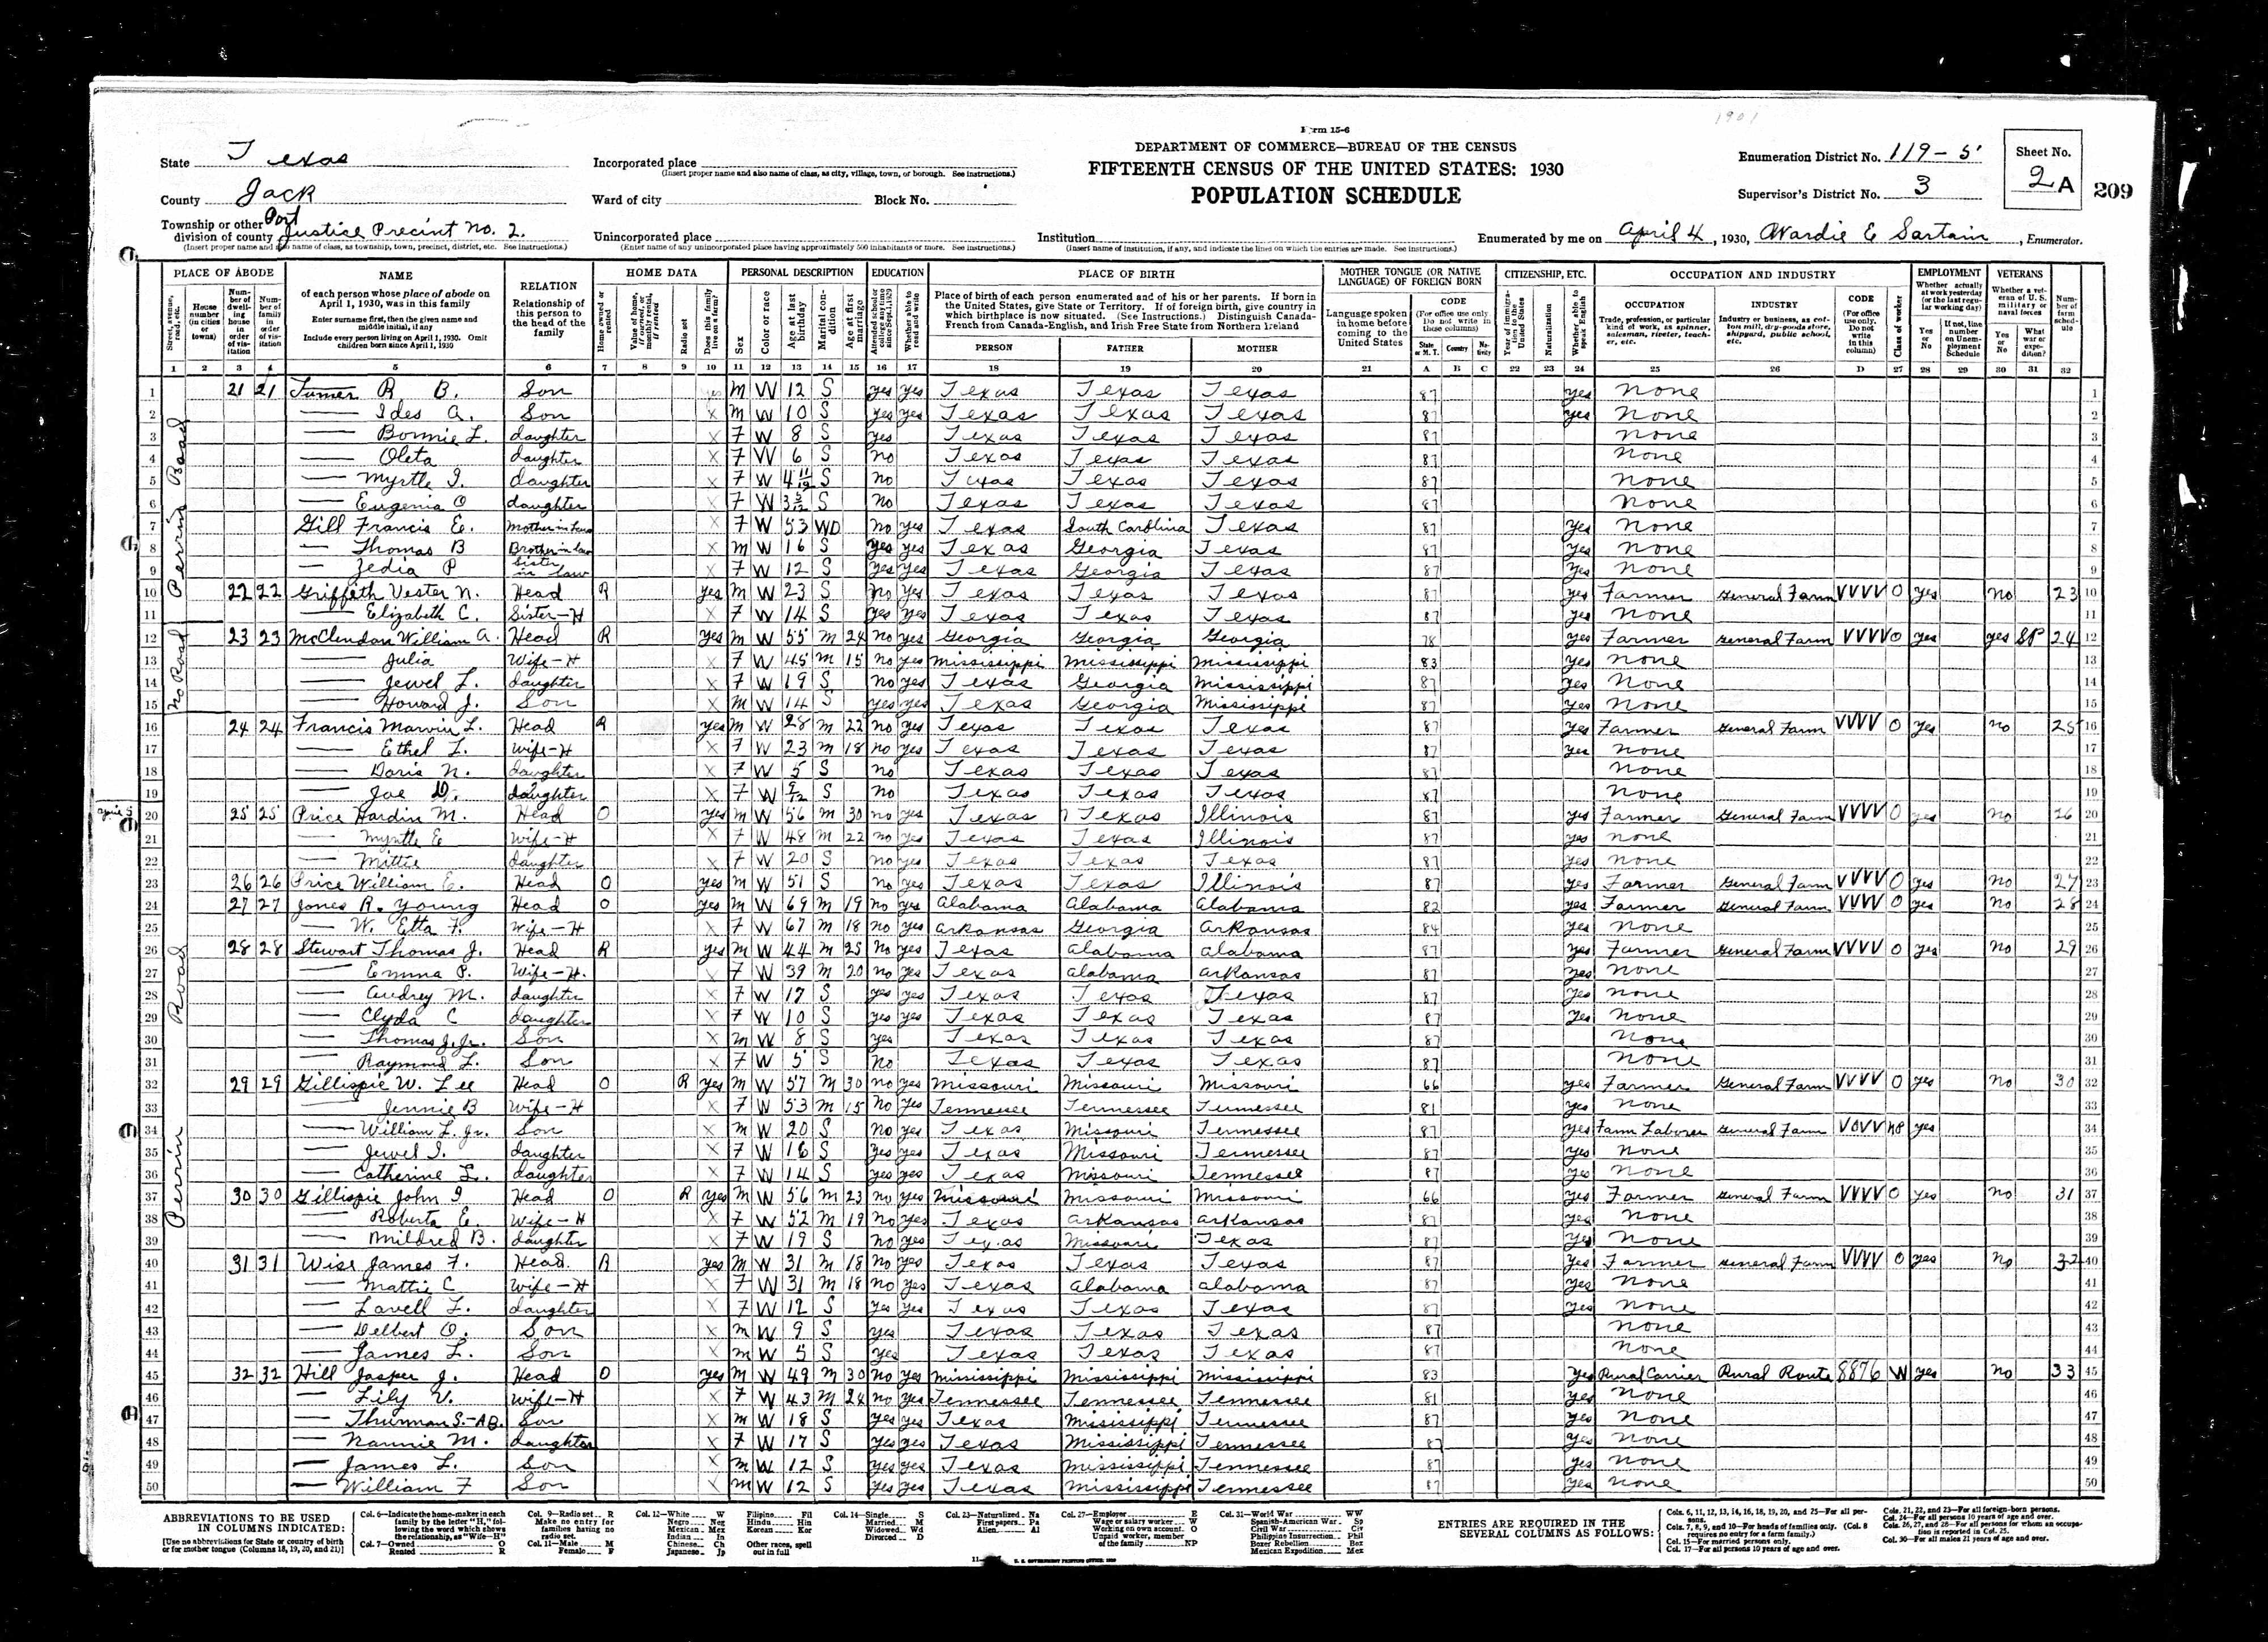 1901
Form 15-6
DEPARTMENT OF COMMERCE—BUREAU OF THE CENSUS
FIFTEENTH CENSUS OF THE UNITED STATES: 1930
POPULATION SCHEDULE
State Texas
County Jack
Township or other division of county Part Justice Precint No. 2.
(Insert proper name and also name of class, as township, town, precinct, district, etc. See instructions.)
Incorporated place
(Insert proper name and also name of class, as city, village, town, or borough. See instructions.)
Ward of city Block No.
Unincorporated place
(Enter name of any unincorporated place having approximately 500 inhabitants or more. See instructions.)
Institution
(Insert name of institution, if any, and indicate the lines on which the entries are made. See instructions.)
Enumeration District No. 119-5
Supervisor's District No. 3
Sheet No. 2 A
209
Enumerated by me on April 4, 1930, Wardie E Sartain, Enumerator.
PLACE OF ABODE NAME RELATION HOME DATA PERSONAL DESCRIPTION EDUCATION PLACE OF BIRTH MOTHER TONGUE (OR NATIVE LANGUAGE) OF FOREIGN BORN CITIZENSHIP, ETC. OCCUPATION AND INDUSTRY EMPLOYMENT VETERANS
Perrin Road
No Road
Perrin Road
April 5
1 21 21 Turner R B. Son yes M W 12 S yes yes Texas Texas Texas 87 yes None 1
2 — Ides A. Son X M W 10 S yes yes Texas Texas Texas 87 yes None 2
3 — Bonnie L. daughter X F W 8 S yes Texas Texas Texas 87 None 3
4 — Oleta daughter X F W 6 S no Texas Texas Texas 87 None 4
5 — Myrtle I. daughter X F W 4 11/12 S no Texas Texas Texas 87 None 5
6 — Eugenia O daughter X F W 3 5/12 S No Texas Texas Texas 87 None 6
7 Gill Francis E. Mother in law X F W 53 WD No yes Texas South Carolina Texas 87 yes None 7
8 — Thomas B Brother in law X M W 16 S yes yes Texas Georgia Texas 87 yes None 8
9 — Zedia P Sister in law X F W 12 S yes yes Texas Georgia Texas 87 yes None 9
10 22 22 Griffeth Vester N. Head R yes M W 23 S no yes Texas Texas Texas 87 yes Farmer General Farm VVVV O yes no 23 10
11 — Elizabeth C. Sister-H X F W 14 S yes yes Texas Texas Texas 87 yes None 11
12 23 23 McClendon William A. Head R yes M W 55 M 24 no yes Georgia Georgia Georgia 78 yes Farmer General Farm VVVV O yes yes SP 24 12
13 — Julia Wife-H X F W 45 M 15 no yes Mississippi Mississippi Mississippi 83 yes None 13
14 — Jewel L. daughter X F W 19 S no yes Texas Georgia Mississippi 87 yes None 14
15 — Howard J. Son X M W 14 S yes yes Texas Georgia Mississippi 87 yes None 15
16 24 24 Francis Marvin L. Head R yes M W 28 M 22 no yes Texas Texas Texas 87 yes Farmer General Farm VVVV O yes no 25 16
17 — Ethel L. Wife-H X F W 23 M 18 no yes Texas Texas Texas 87 yes None 17
18 — Doris N. daughter X F W 5 S no Texas Texas Texas 87 None 18
19 — Joe D. daughter X F W S No Texas Texas Texas 87 None 19
20 25 25 Price Hardin M. Head O yes M W 56 M 30 no yes Texas Texas Illinois 87 yes Farmer General Farm VVVV O yes No 26 20
21 — Myrtle E Wife-H X F W 48 M 22 no yes Texas Texas Illinois 87 yes None 21
22 — Mittie daughter X F W 20 S no yes Texas Texas Texas 87 yes None 22
23 26 26 Price William E. Head O yes M W 51 S No yes Texas Texas Illinois 87 yes Farmer General Farm VVVV O yes No 27 23
24 27 27 Jones R. Young Head O yes M W 69 M 19 no yes Alabama Alabama Alabama 82 yes Farmer General Farm VVVV O yes No 28 24
25 — W. Etta F. Wife-H X F W 67 M 18 no yes Arkansas Georgia Arkansas 84 yes None 25
26 28 28 Stewart Thomas J. Head R yes M W 44 M 25 No yes Texas Alabama Alabama 87 yes Farmer General Farm VVVV O yes No 29 26
27 — Emma P. Wife-H. X F W 39 M 20 no yes Texas Alabama Arkansas 87 yes None 27
28 — Audrey M. daughter X F W 17 S yes yes Texas Texas Texas 87 yes None 28
29 — Clyda C daughter X F W 10 S yes yes Texas Texas Texas 87 yes None 29
30 — Thomas J. Jr. Son X M W 8 S yes Texas Texas Texas 87 None 30
31 — Raymond L. Son X F W 5 S No Texas Texas Texas 87 None 31
32 29 29 Gillispie W. Lee Head O R yes M W 57 M 30 no yes Missouri Missouri Missouri 66 yes Farmer General Farm VVVV O yes No 30 32
33 — Jennie B Wife-H X F W 53 M 15 No yes Tennessee Tennessee Tennessee 81 yes None 33
34 — William L. Jr. Son X M W 20 S No yes Texas Missouri Tennessee 87 yes Farm Laborer General Farm VOVV NP yes 34
35 — Jewel I. daughter X F W 16 S yes yes Texas Missouri Tennessee 87 yes None 35
36 — Catherine L. daughter X F W 14 S yes yes Texas Missouri Tennessee 87 yes None 36
37 30 30 Gillispie John I Head O R yes M W 56 M 23 no yes Missouri Missouri Missouri 66 yes Farmer General Farm VVVV O yes No 31 37
38 — Roberta E. Wife-H X F W 52 M 19 No yes Texas Arkansas Arkansas 87 yes None 38
39 — Mildred B. daughter X F W 19 S No yes Texas Missouri Texas 87 yes None 39
40 31 31 Wise James F. Head. R yes M W 31 M 18 no yes Texas Texas Texas 87 yes Farmer General Farm VVVV O yes No 32 40
41 — Mattie C Wife-H X F W 31 M 18 no yes Texas Alabama Alabama 87 yes None 41
42 — Lavell L. daughter X F W 12 S yes yes Texas Texas Texas 87 yes None 42
43 — Delbert O. Son X M W 9 S yes Texas Texas Texas 87 None 43
44 — James L. Son X M W 5 S yes Texas Texas Texas 87 None 44
45 32 32 Hill Jasper J. Head O yes M W 49 M 30 No yes Mississippi Mississippi Mississippi 83 yes Rural Carrier Rural Route 8876 W yes No 33 45
46 — Lily V. Wife-H X F W 43 M 24 no yes Tennessee Tennessee Tennessee 81 yes None 46
47 — Thurman S.-AB. Son X M W 18 S yes yes Texas Mississippi Tennessee 87 yes None 47
48 — Nannie M. daughter X F W 17 S yes yes Texas Mississippi Tennessee 87 yes None 48
49 — James L. Son X M W 12 S yes yes Texas Mississippi Tennessee 87 yes None 49
50 — William F Son X M W 12 S yes yes Texas Mississippi Tennessee 87 yes None 50
ABBREVIATIONS TO BE USED IN COLUMNS INDICATED:
[Use no abbreviations for State or country of birth or for mother tongue (Columns 18, 19, 20, and 21)]
ENTRIES ARE REQUIRED IN THE SEVERAL COLUMNS AS FOLLOWS: